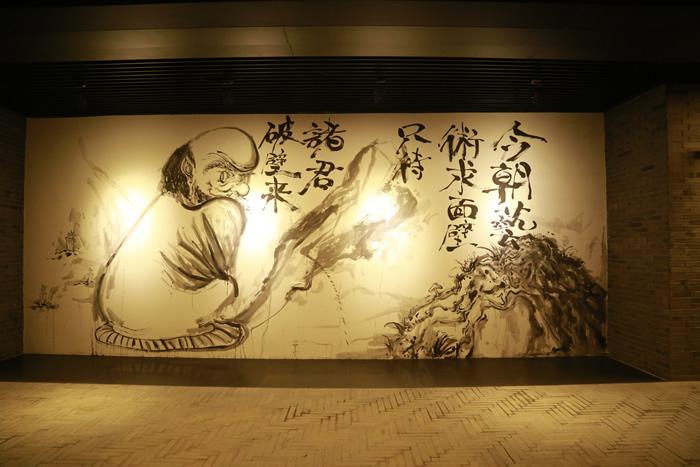 今朝藝
術求面壁
只待
諸君
破壁来